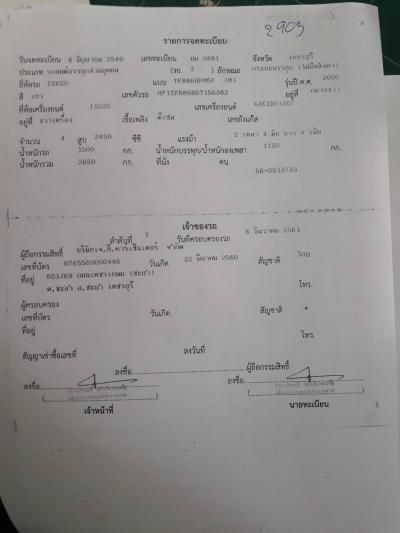 2903
รายการจดทะเบียน
วันจดทะเบียน 6 มิถุนายน 2549 เลขทะเบียน บม 3881 จังหวัด เพชรบุรี
ประเภท รถยนต์บรรทุกส่วนบุคคล (รย. 3 ) ลักษณะ กระบะบรรทุก (ไม่มีหลังคา)
ยี่ห้อรถ ISUZU แบบ รุ่นปี ค.ศ. 2005
สี เทา เลขตัวรถ MP1TFR86H6T156382 อยู่ที่
ยี่ห้อเครื่องยนต์ ISUZU เลขเครื่องยนต์
อยู่ที่ ขวาเครื่อง เชื้อเพลิง ดีเซล เลขถังแก๊ส
จำนวน 4 สูบ 2499 ซีซี แรงม้า 2 เพลา 4 ล้อ ยาง 4 เส้น
น้ำหนักรถ 1500 กก. น้ำหนักบรรทุก/น้ำหนักลงเพลา 1150 กก.
น้ำหนักรวม 2650 กก. ที่นั่ง คน
58-0513733
เจ้าของรถ
ลำดับที่ 7 วันที่ครอบครองรถ 6 ธันวาคม 2561
ผู้ถือกรรมสิทธิ์ บริษัทเจ.ที.คาร์เซ็นเตอร์ จำกัด
เลขที่บัตร 0765560000446 วันเกิด 22 มีนาคม 2560 สัญชาติ ไทย
ที่อยู่ 653/69 ถนนเพชรเกษม (ชะอำ)
ต.ชะอำ อ.ชะอำ เพชรบุรี โทร.
ผู้ครอบครอง
เลขที่บัตร วันเกิด สัญชาติ
ที่อยู่
โทร.
สัญญาเช่าซื้อเลขที่ ลงวันที่
ลงชื่อ ผู้ถือกรรมสิทธิ์
ลงชื่อ ลงชื่อ
เจ้าหน้าที่ นายทะเบียน
5